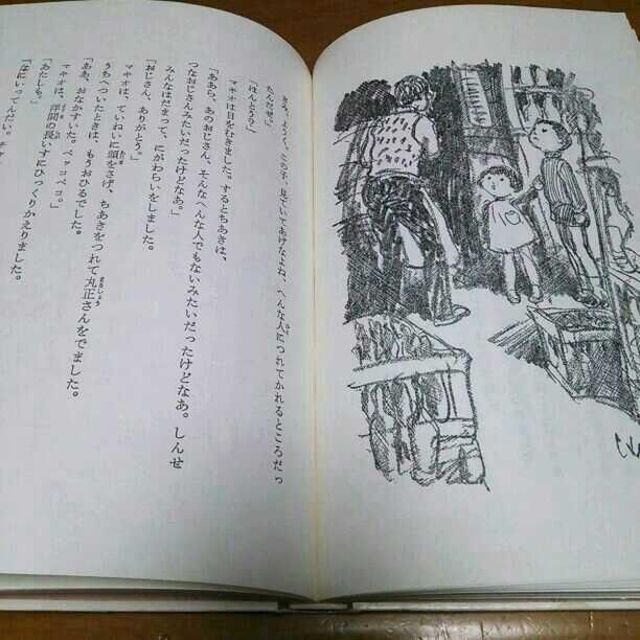 きみ、ようく、この子、見ていてあげなよね、へんな人につれてかれるところだっ
たんだぜ。」
「ほんとう？」
マキオは目をむきました。するとちあきは、
「ああら、あのおじさん、そんなへんな人でもないみたいだったけどなあ。しんせ
つなおじさんみたいだったけどなあ。」
みんなはだまって、にがわらいをしました。
「おじさん、ありがとう。」
マキオは、ていねいに頭をさげ、ちあきをつれて丸正さんをでました。
うちへついたときは、もうおひるでした。
「ああ、おなかすいた。ペッコペコ。」
マキオは、洋間の長いすにひっくりかえりました。
「あたしも。」
「なにいってんだい。